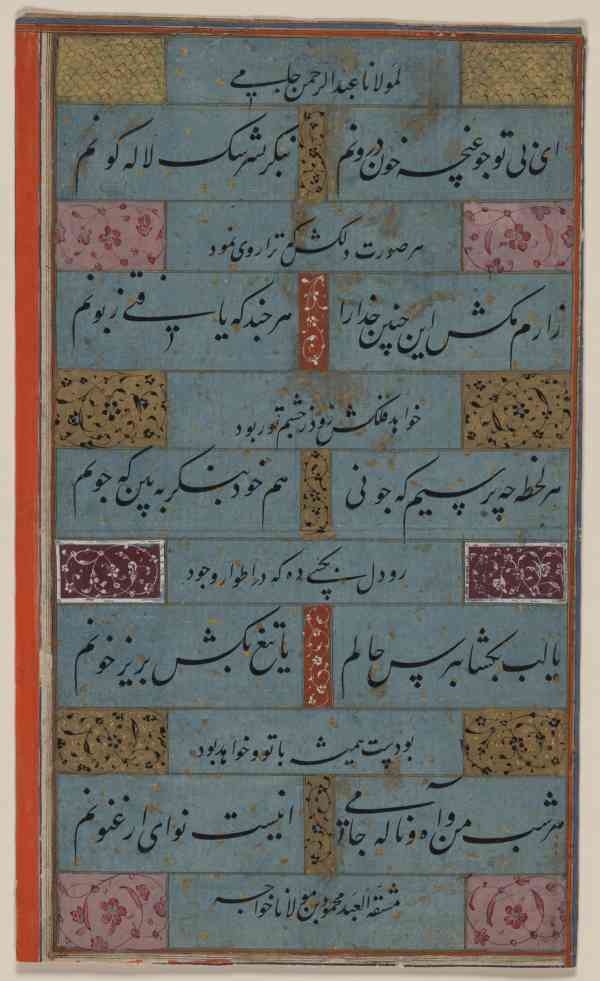 لمولانا عبدالرحمن جامی
ای بی تو جو غنچه خون درونم بنکر بسرشک لاله کونم
هر صورت دلکش که ترا روی نمود
زارم مکش این چنین خدارا هر چند که یافتی زبونم
خواهد فلکش زود ز چشم تو ربود
هر لحظه چه پرسیم که چونی هم خود بنکر به بین که چونم
رو دل بکسی ده که در اطوار وجود
یا لب بکشا بپرس حالم یا تیغ بکش بریز خونم
بودست همیشه با تو و خواهد بود
هر شب من و آه و ناله جامی اینست نوای ارغنونم
مشقه العبد محمود بن مولانا خواجه